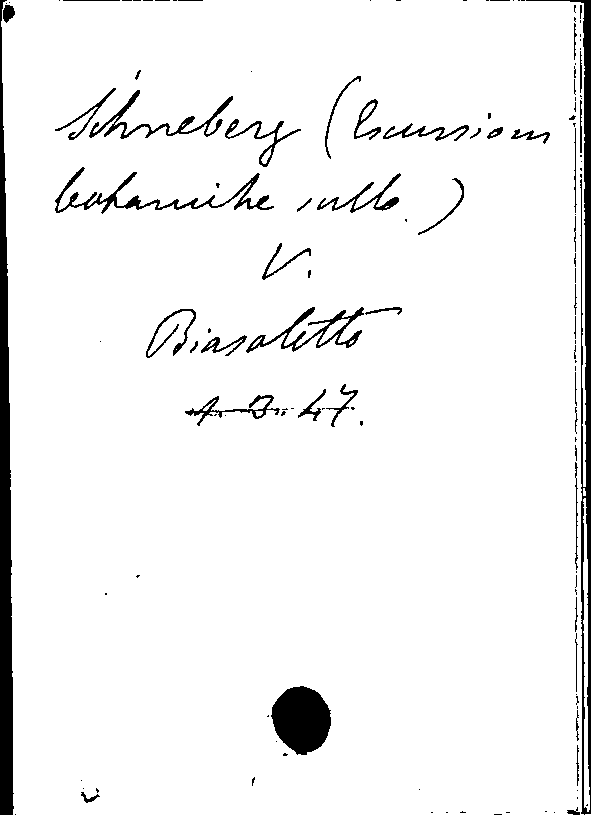 Schneberg (Escursioni
botaniche sullo)
V.
Biasoletto
A. B. 47.